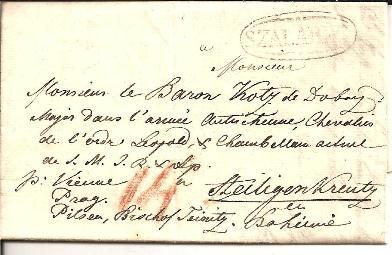 SZALA
à
Monsieur
Monsieur le Baron Kotz de Dobrz
Major dans l'armée Autrichienne, Chevalier
de l'ordre Leopold, & Chambellan actuel
de S. M. I. R. & Ap.
pr Vienne
à
Heiligen Kreutz
Prag.
en
Pilsen, Bischof Teinitz,
Bohême
14